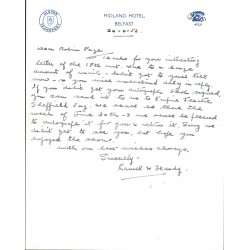 MIDLAND HOTEL,
BELFAST
24-6-52
Dear Robin Page
Thanks for your interesting
letter of the 18th inst. Due to a large
amount of mail, didn't get to yours till
now. So you will understand delay in reply.
If you didn't get your autographs book signed,
you can send it to us to Empire Theatre
Sheffield Eng. We will be there the
week of June 30th. & will be pleased
to autograph it for you & return it. Sorry we
didn't get to see you, but hope you
enjoyed the show.
With our best wishes always.
Sincerely
Laurel & Hardy